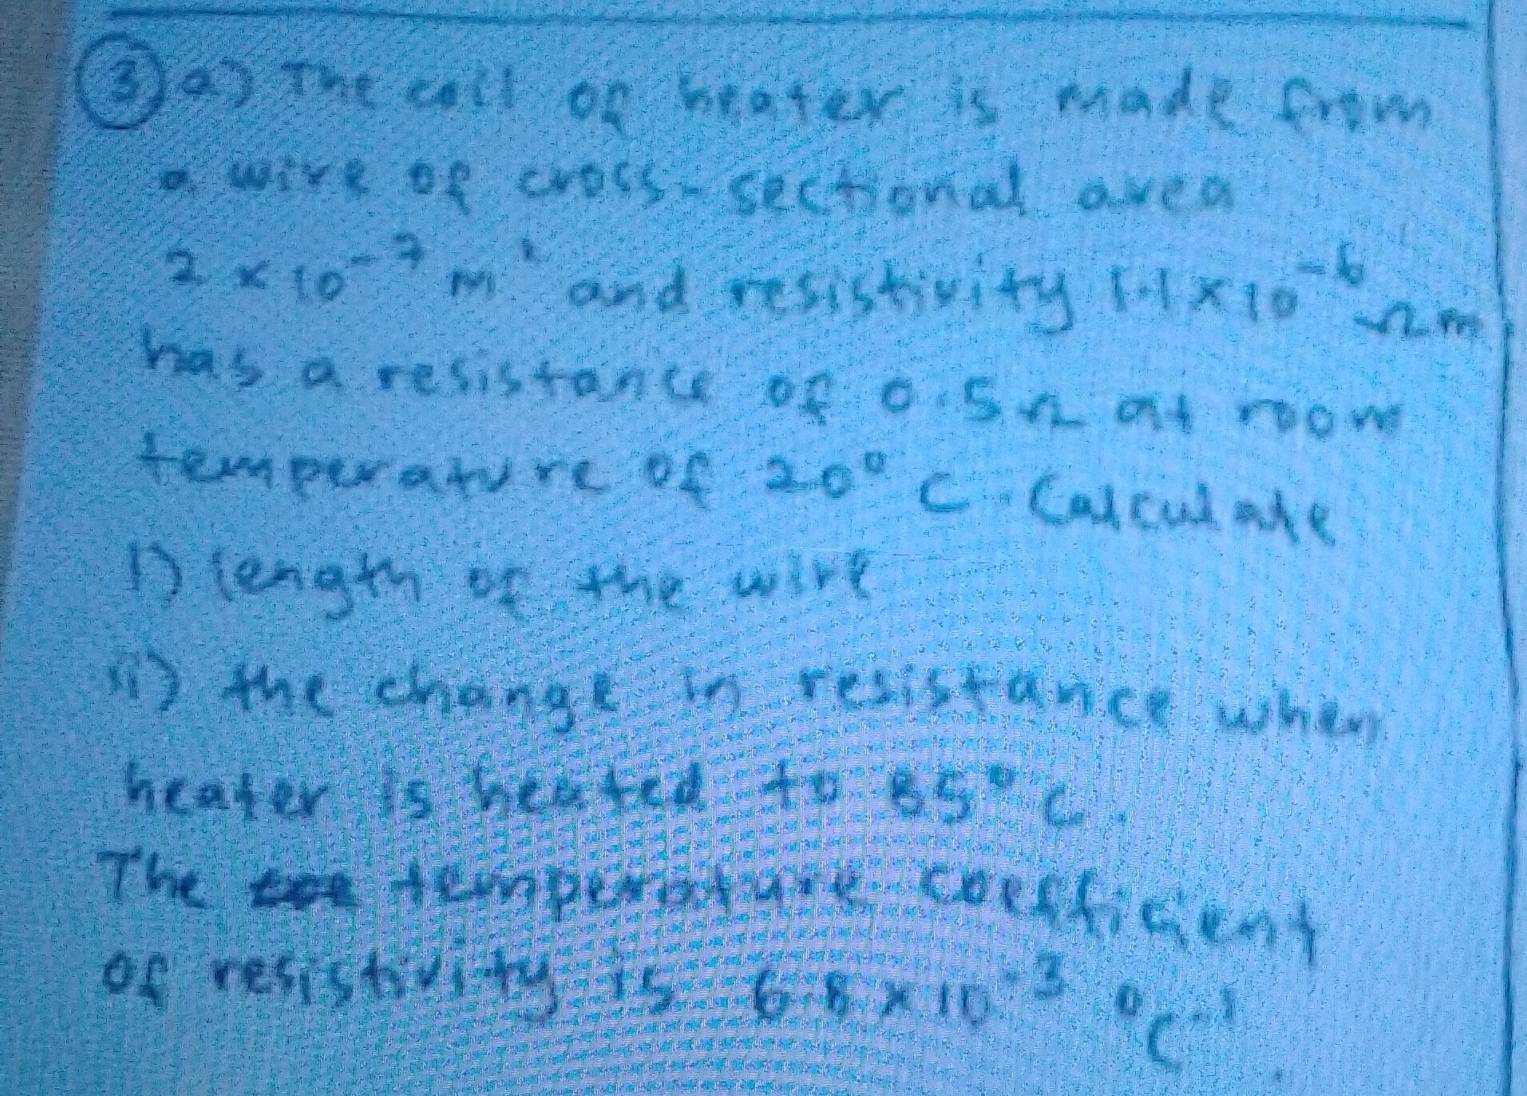 3 a) The coil of heater is made from
a wire of cross-sectional area
2 × 10⁻⁷ m² and resistivity 1.1 × 10⁻⁶ Ωm
has a resistance of 0.5 Ω at room
temperature of 20° C. Calculate
i) length of the wire
ii) the change in resistance when
heater is heated to 85° C.
The temperature coefficient
of resistivity is 6.8 × 10⁻³ °C⁻¹.